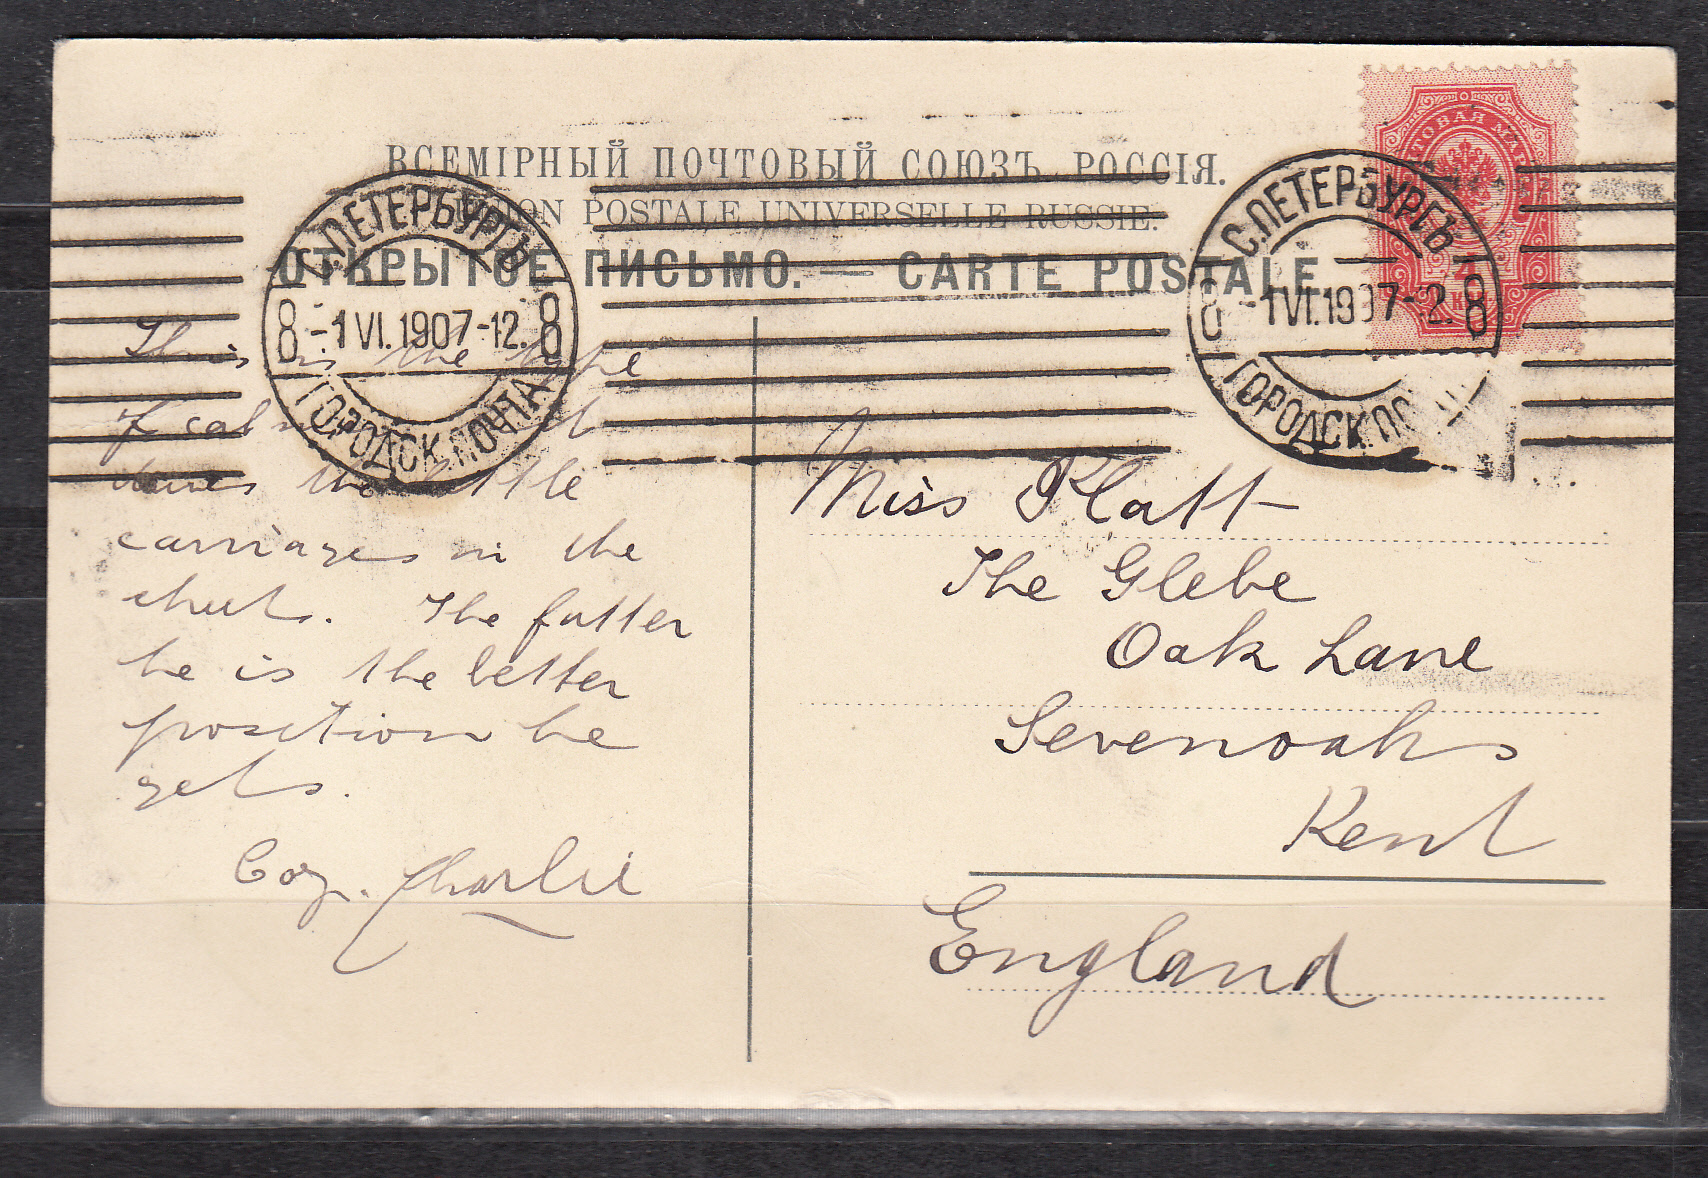 ВСЕМІРНЫЙ ПОЧТОВЫЙ СОЮЗЪ. РОССІЯ.
POSTALE UNIVERSELLE RUSSIE.
ОТКРЫТОЕ ПИСЬМО. — CARTE POSTALE
С.ПЕТЕРБУРГЪ
8 -1 VI.1907-12. 8
ГОРОДСК.ПОЧТА
С.ПЕТЕРБУРГЪ
8 -1VI.1907- 2. 8
ГОРОДСК.ПО
This is the type
of
drives the little
carriages in the
street. The fatter
he is the better
position he
gets.
Charlie
Miss Platt
The Glebe
Oak Lane
Sevenoaks
Kent
England